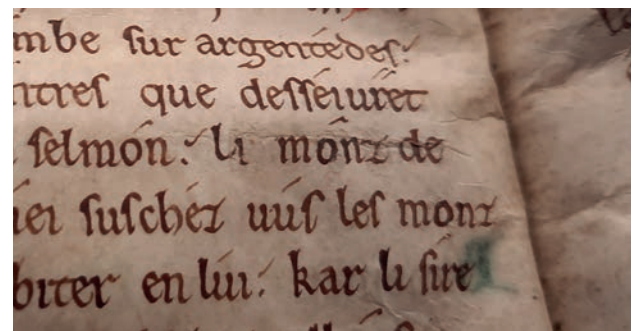 mbe sur argentedes:
ntres que desseiuret
selmon. li monz de
iei suschez uus les monz
biter en lui. kar li sire